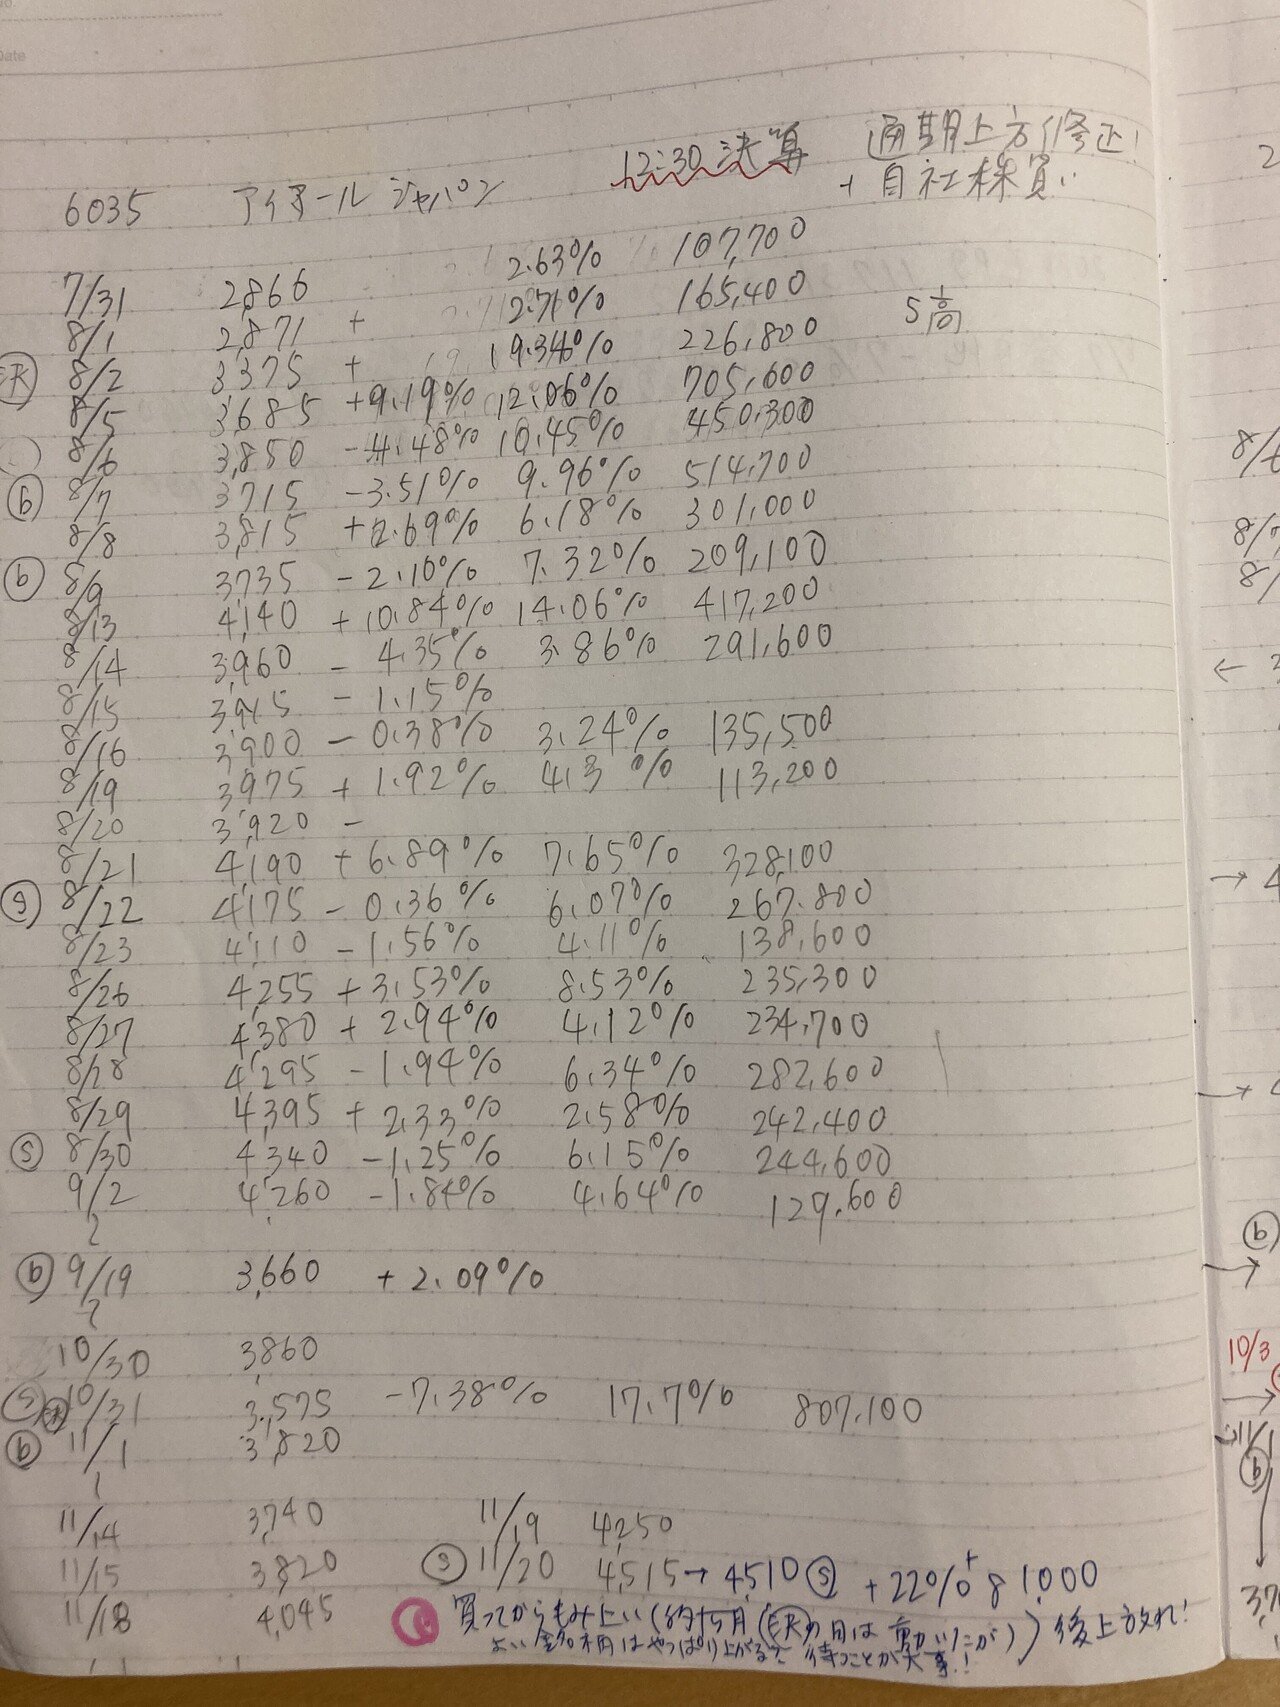 Date
12:30 決算 通期上方修正!
6035 アイアールジャパン + 自社株買い
7/31 2,866 2.63% 107,700
8/1 2,871 + 2.71% 165,400
8/2 3,375 + 19.34% 226,800 S高
8/5 3,685 +9.19% 12.06% 705,600
8/6 3,850 -4.48% 10.45% 450,300
ⓑ 8/7 3,715 -3.51% 9.96% 514,700
8/8 3,815 +2.69% 6.18% 301,000
ⓑ 8/9 3,735 -2.10% 7.32% 209,100
8/13 4,140 +10.84% 14.06% 417,200
8/14 3,960 - 4.35% 3.86% 291,600
8/15 3,915 - 1.15%
8/16 3,900 - 0.38% 3.24% 135,500
8/19 3,975 + 1.92% 4.3 % 113,200
8/20 3,920 -
8/21 4,190 + 6.89% 7.65% 328,100
ⓢ 8/22 4,175 - 0.36% 6.07% 267,800
8/23 4,110 - 1.56% 4.11% 138,600
8/26 4,255 + 3.53% 8.53% 235,300
8/27 4,380 + 2.94% 4.12% 234,700
8/28 4,295 - 1.94% 6.34% 282,600
8/29 4,395 + 2.33% 2.58% 242,400
ⓢ 8/30 4,340 -1.25% 6.15% 244,600
9/2 4,260 -1.84% 4.64% 129,600
ⓑ 9/19 3,660 + 2.09%
10/30 3,860
ⓢ 10/31 3,575 -7.38% 17.7% 807,100
ⓑ 11/1 3,820
11/14 3,740 11/19 4,250
11/15 3,820 ⓢ 11/20 4,515→4,510ⓢ +22% + 81,000
11/18 4,045 買ってからもみ合い(約1ヶ月(決の日は動いたが))後上放れ!
よい銘柄はやっぱり上がるので待つことが大事!!